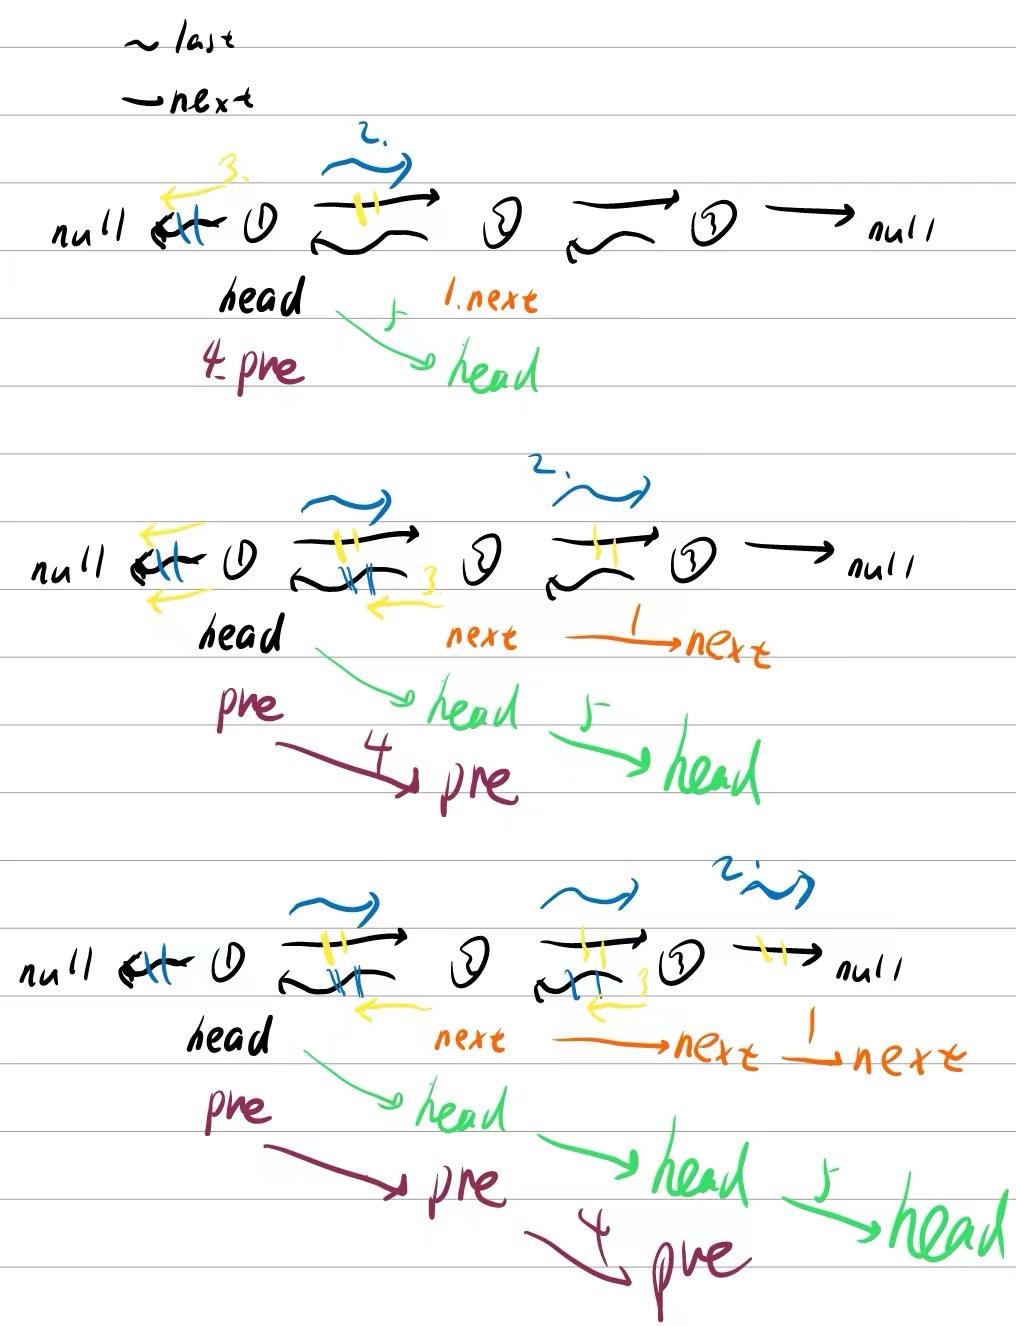 ~ last
— next
2.
3.
null ① ② ③ null
head 1.next
5
4. pre head
2.
null ① ② ③ null
3
head next 1 next
pre head 5
4 pre head
2.
null ① ② ③ null
3
head next next 1 next
pre head
pre head 5 head
4 pre